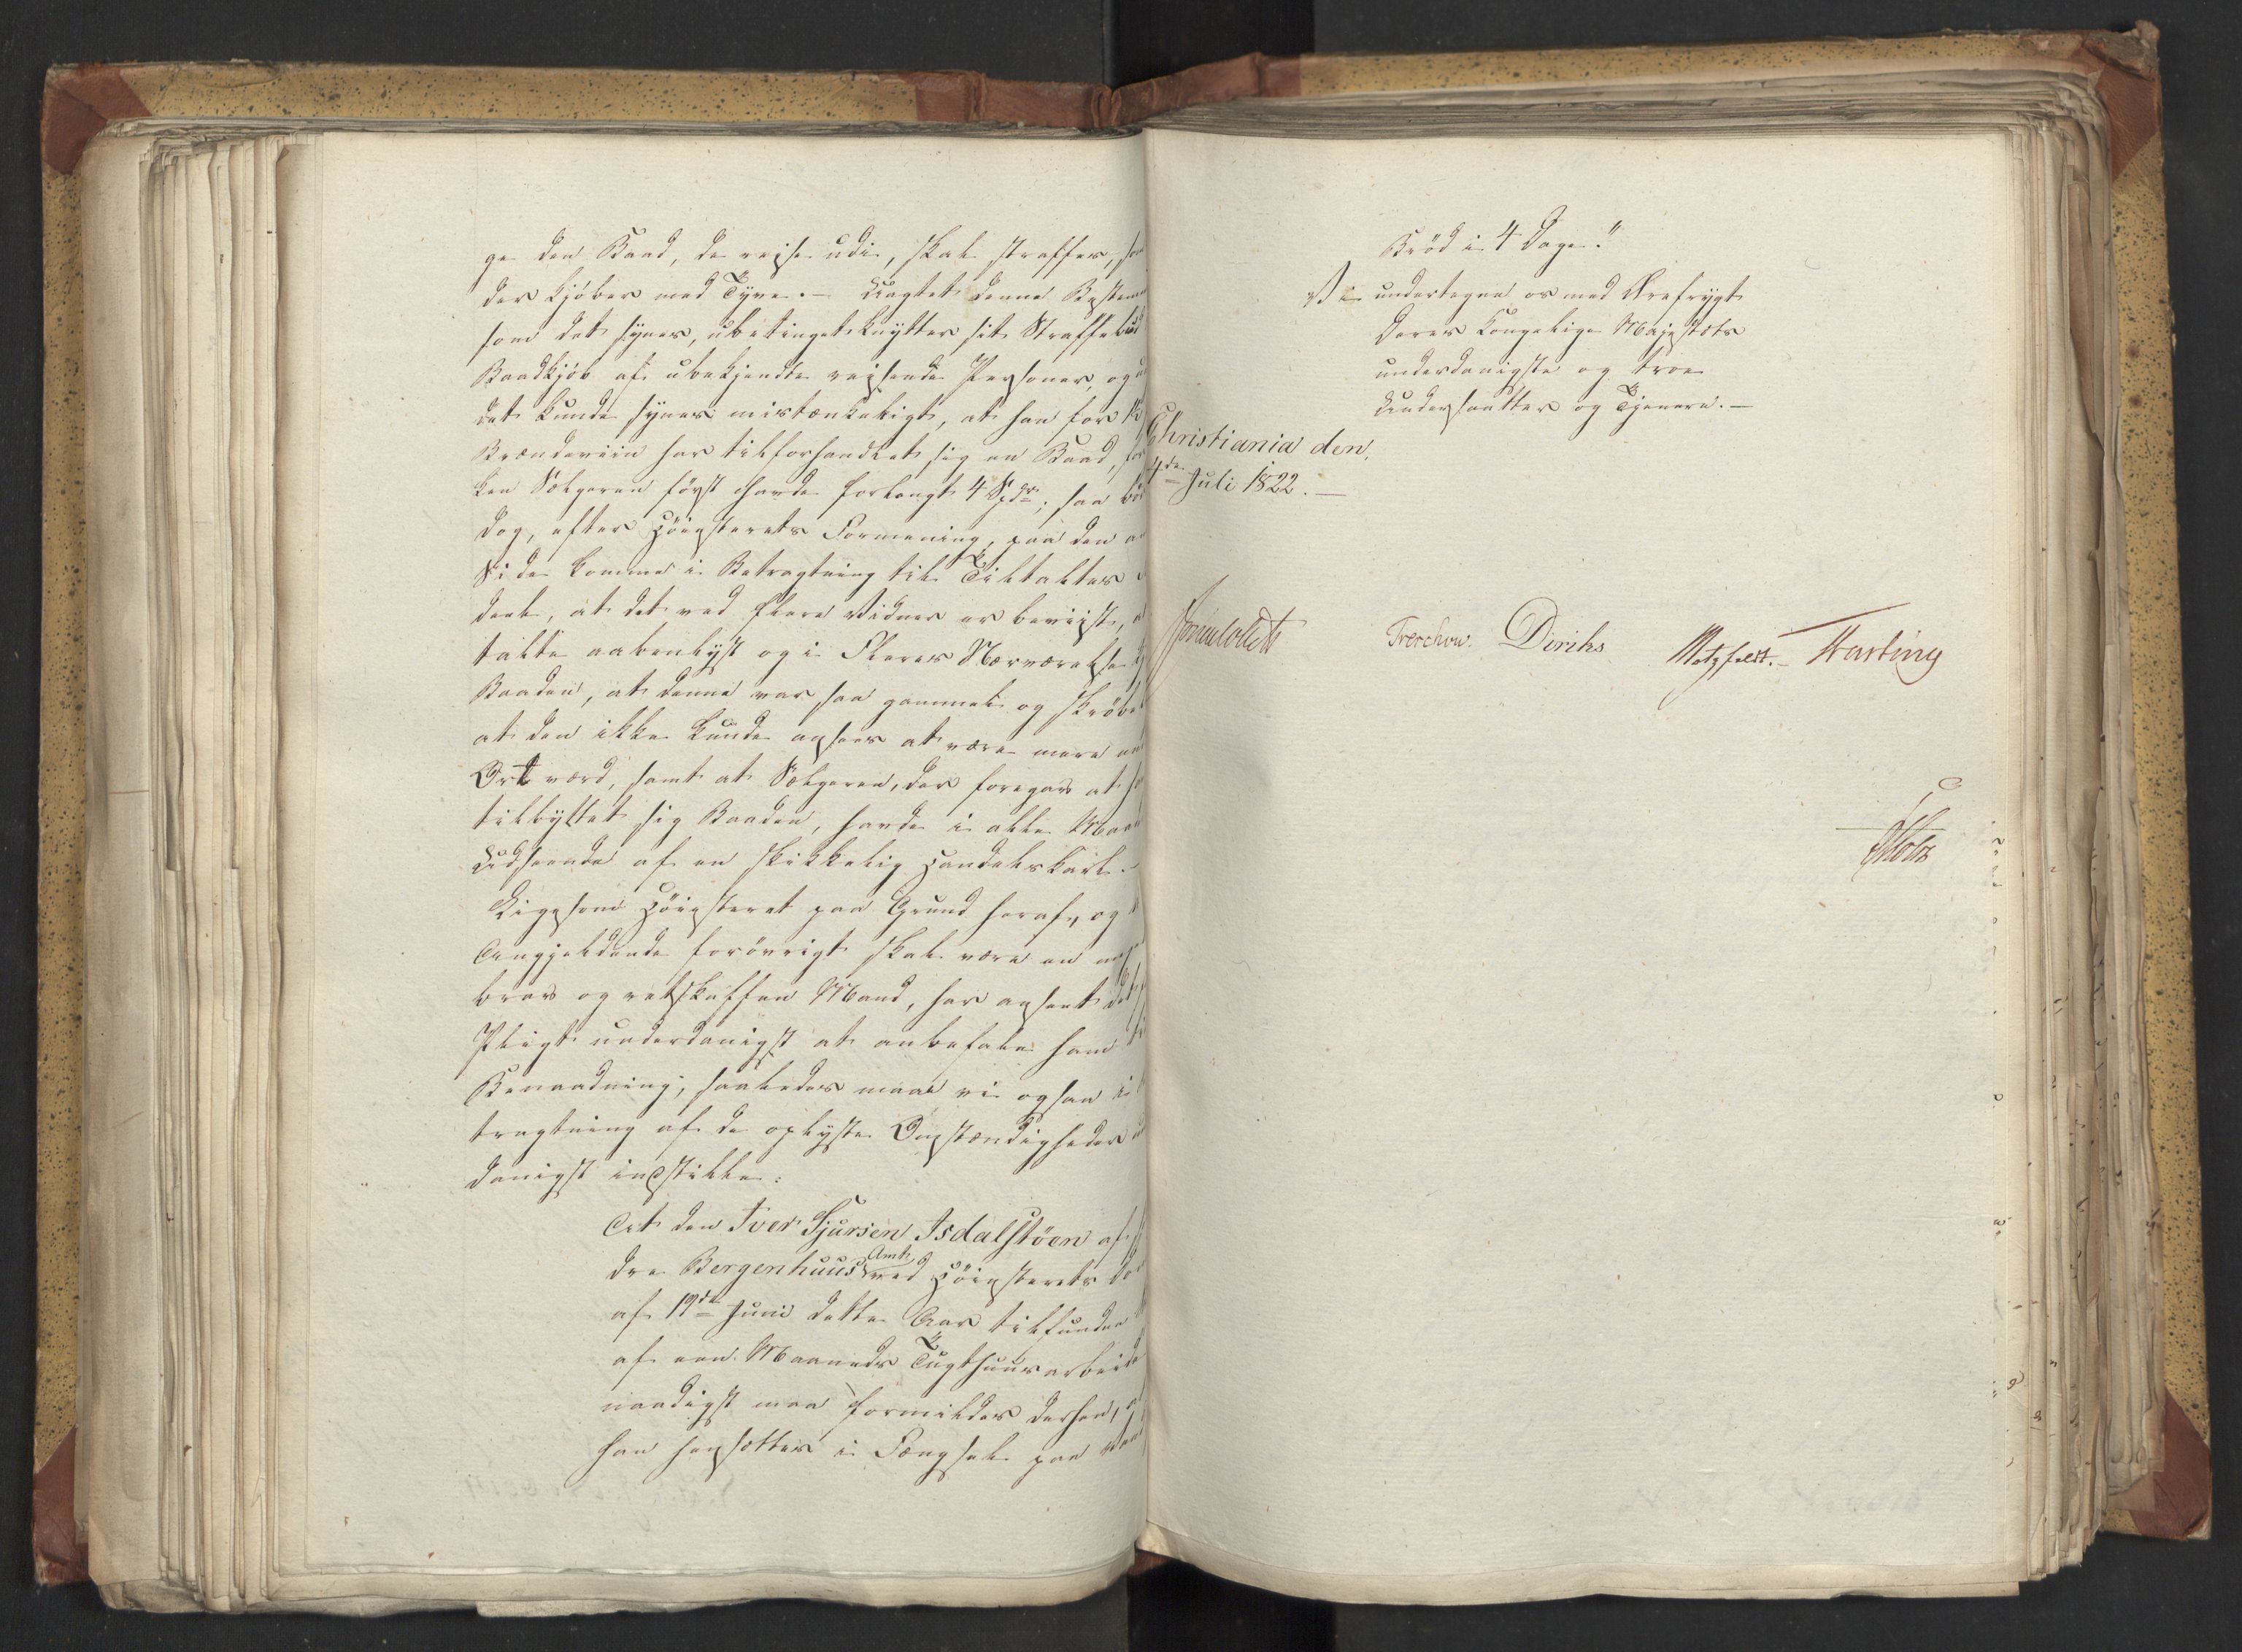 ge den Baad, de reise udi, skal straffes, som
der kjøber med Tyve. — Uagtet denne Bestem
som det synes, ubetinget knytter sit Straffebud
Baadkjøb af ubekjendte reisende Personer, og
det kunde synes mistænkeligt, at han for
Brændeviin har tilforhandlet sig en Baad, for
ken Sælgeren først havde forlangt 4 Spdr; saa bør
dog, efter Høiesterets Formening, paa den
Side komme i Betragtning til Tiltaltes
deel, at det ved flere Vidner er beviist,
taltte aabenlyst og i Fleres Nærværelse
Baaden, at denne var saa gammel og skrøbe
at den ikke kunde ansees at være mere
Ort værd, samt at Sælgeren, der foregav at
tilbyttet sig Baaden, havde i alle Maa
Udseende af en skikkelig Handelskarl. —
Ligesom Høiesteret paa Grund heraf, og
Angjeldende forøvrigt skal være en
brav og retskaffen Mand, har anseet det
Pligt underdanigst at anbefale ham
Benaadning, saaledes maae vi ogsaa i
tragtning af de oplyste Omstændigheder
danigst indstille:
At den Iver Sjursen Isdalstöen af
dre Bergenhuus Amt ved Høiesterets
af 19de Juni dette Aar tilfundne
af een Maaneds Tugthuusarbeide
naadigst maa formildes derhen,
han hensættes i Fængsel paa Vand
Brød i 4 Dage."
Vi undertegne os med Ærefrygt
Deres Kongelige Majestæts
underdanigste og troe
Undersaatter og Tjenere. —
Christiania den,
4de Juli 1822. —
Sommerhielm
Treschow. Diriks Motzfeldt. — Fasting
Holm